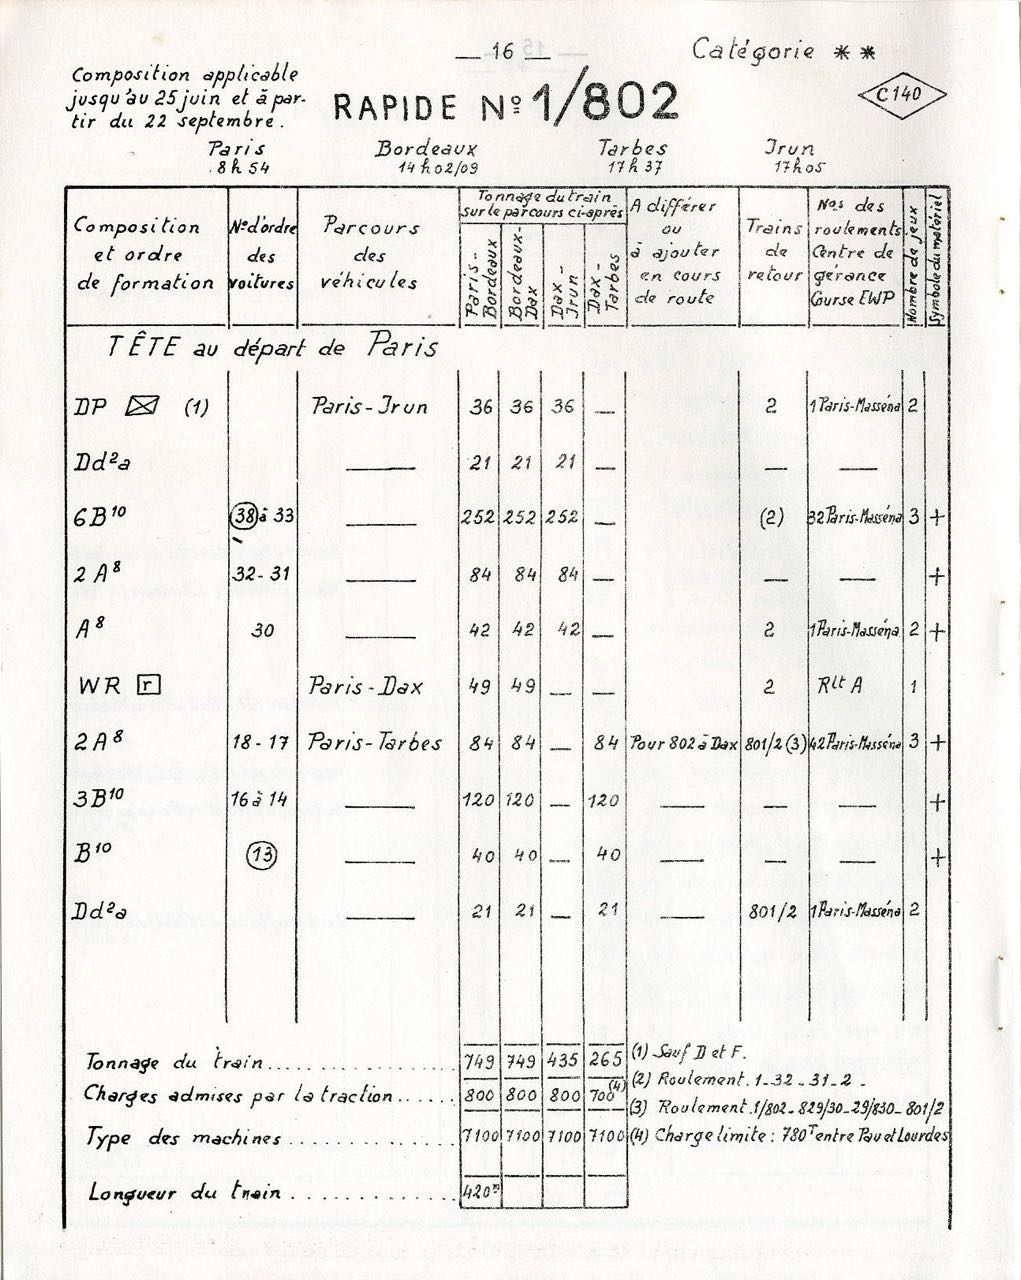 — 16 —
Catégorie * *
Composition applicable
jusqu'au 25 juin et à par-
tir du 22 septembre.
RAPIDE Nº 1/802
C 140
Paris Bordeaux Tarbes Irun
8h54 14h02/09 17h37 17h05
Composition et ordre de formation
Nºs d'ordre des voitures
Parcours des véhicules
Tonnage du train sur le parcours ci-après
Paris-Bordeaux
Bordeaux-Dax
Dax-Irun
Dax-Tarbes
A différer ou à ajouter en cours de route
Trains de retour
Nos des roulements Centre de gérance Course EWP
Nombre de jeux
Symbole du matériel
TÊTE au départ de Paris
DP (1) Paris-Irun 36 36 36 — 2 1 Paris-Masséna 2
Dd²a — 21 21 21 — — —
6B¹⁰ 38 à 33 — 252 252 252 — (2) 32 Paris-Masséna 3 +
2A⁸ 32-31 — 84 84 84 — — — +
A⁸ 30 — 42 42 42 — 2 1 Paris-Masséna 2 +
WR r Paris-Dax 49 49 — — 2 Rlt A 1
2A⁸ 18-17 Paris-Tarbes 84 84 — 84 Pour 802 à Dax 801/2 (3) 42 Paris-Masséna 3 +
3B¹⁰ 16 à 14 — 120 120 — 120 — — — +
B¹⁰ 13 — 40 40 — 40 — — — +
Dd²a — 21 21 — 21 — 801/2 1 Paris-Masséna 2
Tonnage du train.............. 749 749 435 265
Charges admises par la traction...... 800 800 800 700 (4)
Type des machines.............. 7100 7100 7100 7100
Longueur du train............ 420m
(1) Sauf D et F.
(2) Roulement. 1-32-31-2-
(3) Roulement. 1/802-829/30-29/830-801/2
(4) Charge limite : 780T entre Pau et Lourdes